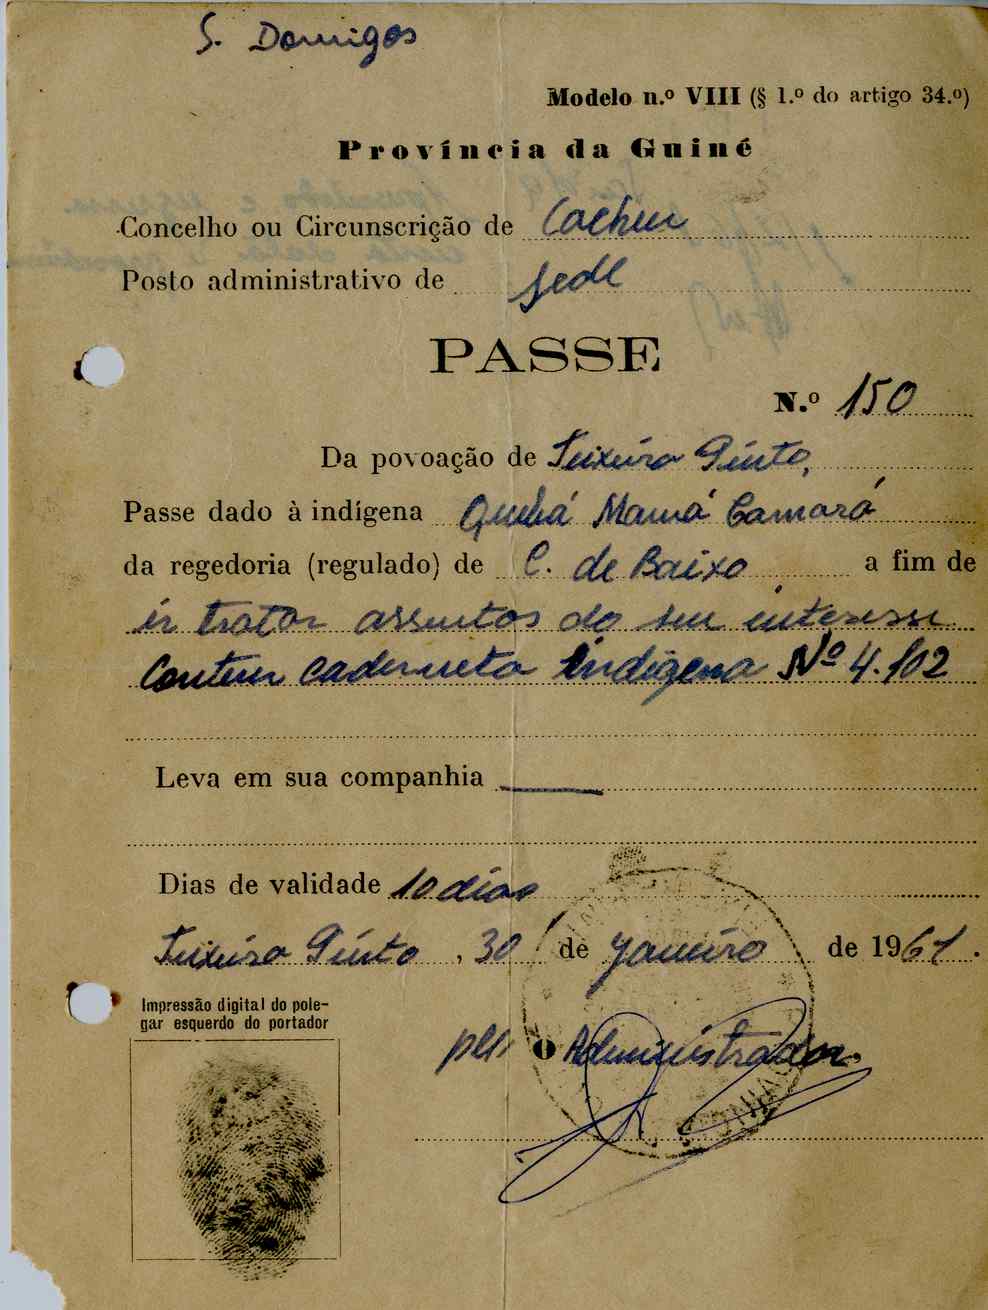 S. Domigos
Modelo n.º VIII (§ 1.º do artigo 34.º)
Província da Guiné
Concelho ou Circunscrição de Cacheu
Posto administrativo de Sede
PASSE
N.º 150
Da povoação de Teixeira Pinto,
Passe dado à indígena Quebá Mamá Camará
da regedoria (regulado) de C. de Baixo a fim de
ir tratar assuntos do seu interesse
Contem caderneta indígena Nº 4.102
Leva em sua companhia
Dias de validade 10 dias
Teixeira Pinto, 30 de Janeiro de 1961.
Impressão digital do pole-
gar esquerdo do portador
O Administrador.